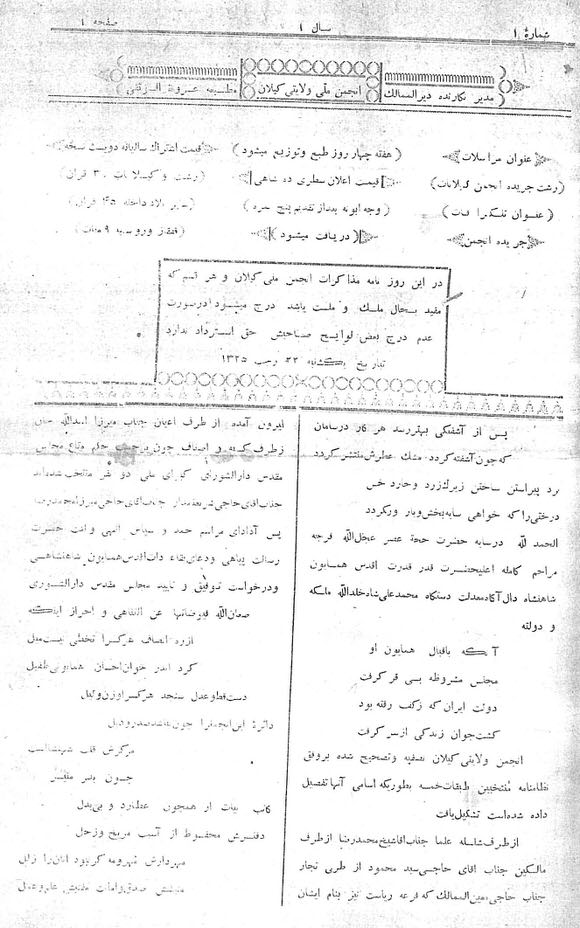 شمارهٔ ۱
سال ۱
صفحه ۱
مدیر نگارنده دبیرالممالک
انجمن ملی ولایتی گیلان
مطبعه عروة الوثقی
عنوان مراسلات
(رشت جریده انجمن گیلانات)
(عنوان تلگرافات)
جریده انجمن
(هفته چهار روز طبع و توزیع میشود)
قیمت اعلان سطری ده شاهی
(وجه ابونه بعد از تقدیم پنج نمره)
(دریافت میشود)
قیمت اشتراک سالیانه دویست نسخه
(رشت و گیلانات ۳۰ قران)
(سایر بلاد داخله ۴۵ قران)
(قفقاز و روسیه ۹ منات)
در این روز نامه مذاکرات انجمن ملی گیلان و هر قسم که
مفید بحال ملک و ملت باشد درج میشود درصورت
عدم درج بعض لوایح صاحبش حق استرداد ندارد
بتاریخ یکشنبه ۲۲ رجب ۱۳۲۵
پس از آشفتگی بهتر رسد هر کار درسامان
که چون آشفته گردد مشک عطرش منتشر گردد
برد پیراستن ساختن زیرک زرد و خارد خس
درختی را که خواهی سایه بخش و بارور گردد
الحمد لله درسایه حضرت حجة عصر عجل الله فرجه
مراحم کامله اعلیحضرت قدر قدرت اقدس همایون
شاهنشاه دل آگاه معدلت دستگاه محمد علی شاه خلدالله ملکه
و دولته
آنکه باقبال همایون او
مجلس مشروطه بسی فر گرفت
دولت ایران که زکف رفته بود
گشت جوان زندگی از سر گرفت
انجمن ولایتی گیلان تصفیه و تصحیح شده بر وفق
نظامنامه منتخبین طبقات خمسه بطوریکه اسامی آنها تفصیل
داده شده است تشکیل یافت
از طرف سلسله علما جناب آقا شیخ محمد رضا از طرف
مالکین جناب آقای حاجی سید محمود از طرف تجار
جناب حاجی معین الممالک که قرعه ریاست نیز بنام ایشان
بیرون آمده از طرف اعیان جناب میرزا اسدالله خان
از طرف کسبه و اصناف چون مجلس
مقدس دارالشورای کبرای ملی دو نفر منتخب شده اند
جناب آقای حاجی شریعتمدار جناب آقای حاجی میرزا محمد رضا
پس از ادای مراسم حمد و سپاس الهی و نعت حضرت
رسالت پناهی و دعای بقاء ذات اقدس همایون شاهنشاهی
و درخواست توفیق و تایید مجلس مقدس دارالشوری
صان الله عن التناهی و احراز اینکه
ازره انصاف هر کس را تخطی نیست میل
گرد اندر خوان احسان همایونی طفیل
دست قطو عدل سنجد هر کس را وزن و کیل
دائرهٔ این انجمن را چون
مرکزش قلب
چون بدر منیر
کاتب بیات او همچون عطارد و بی بدل
دفترش محفوظ از آسیب مریخ و زحل